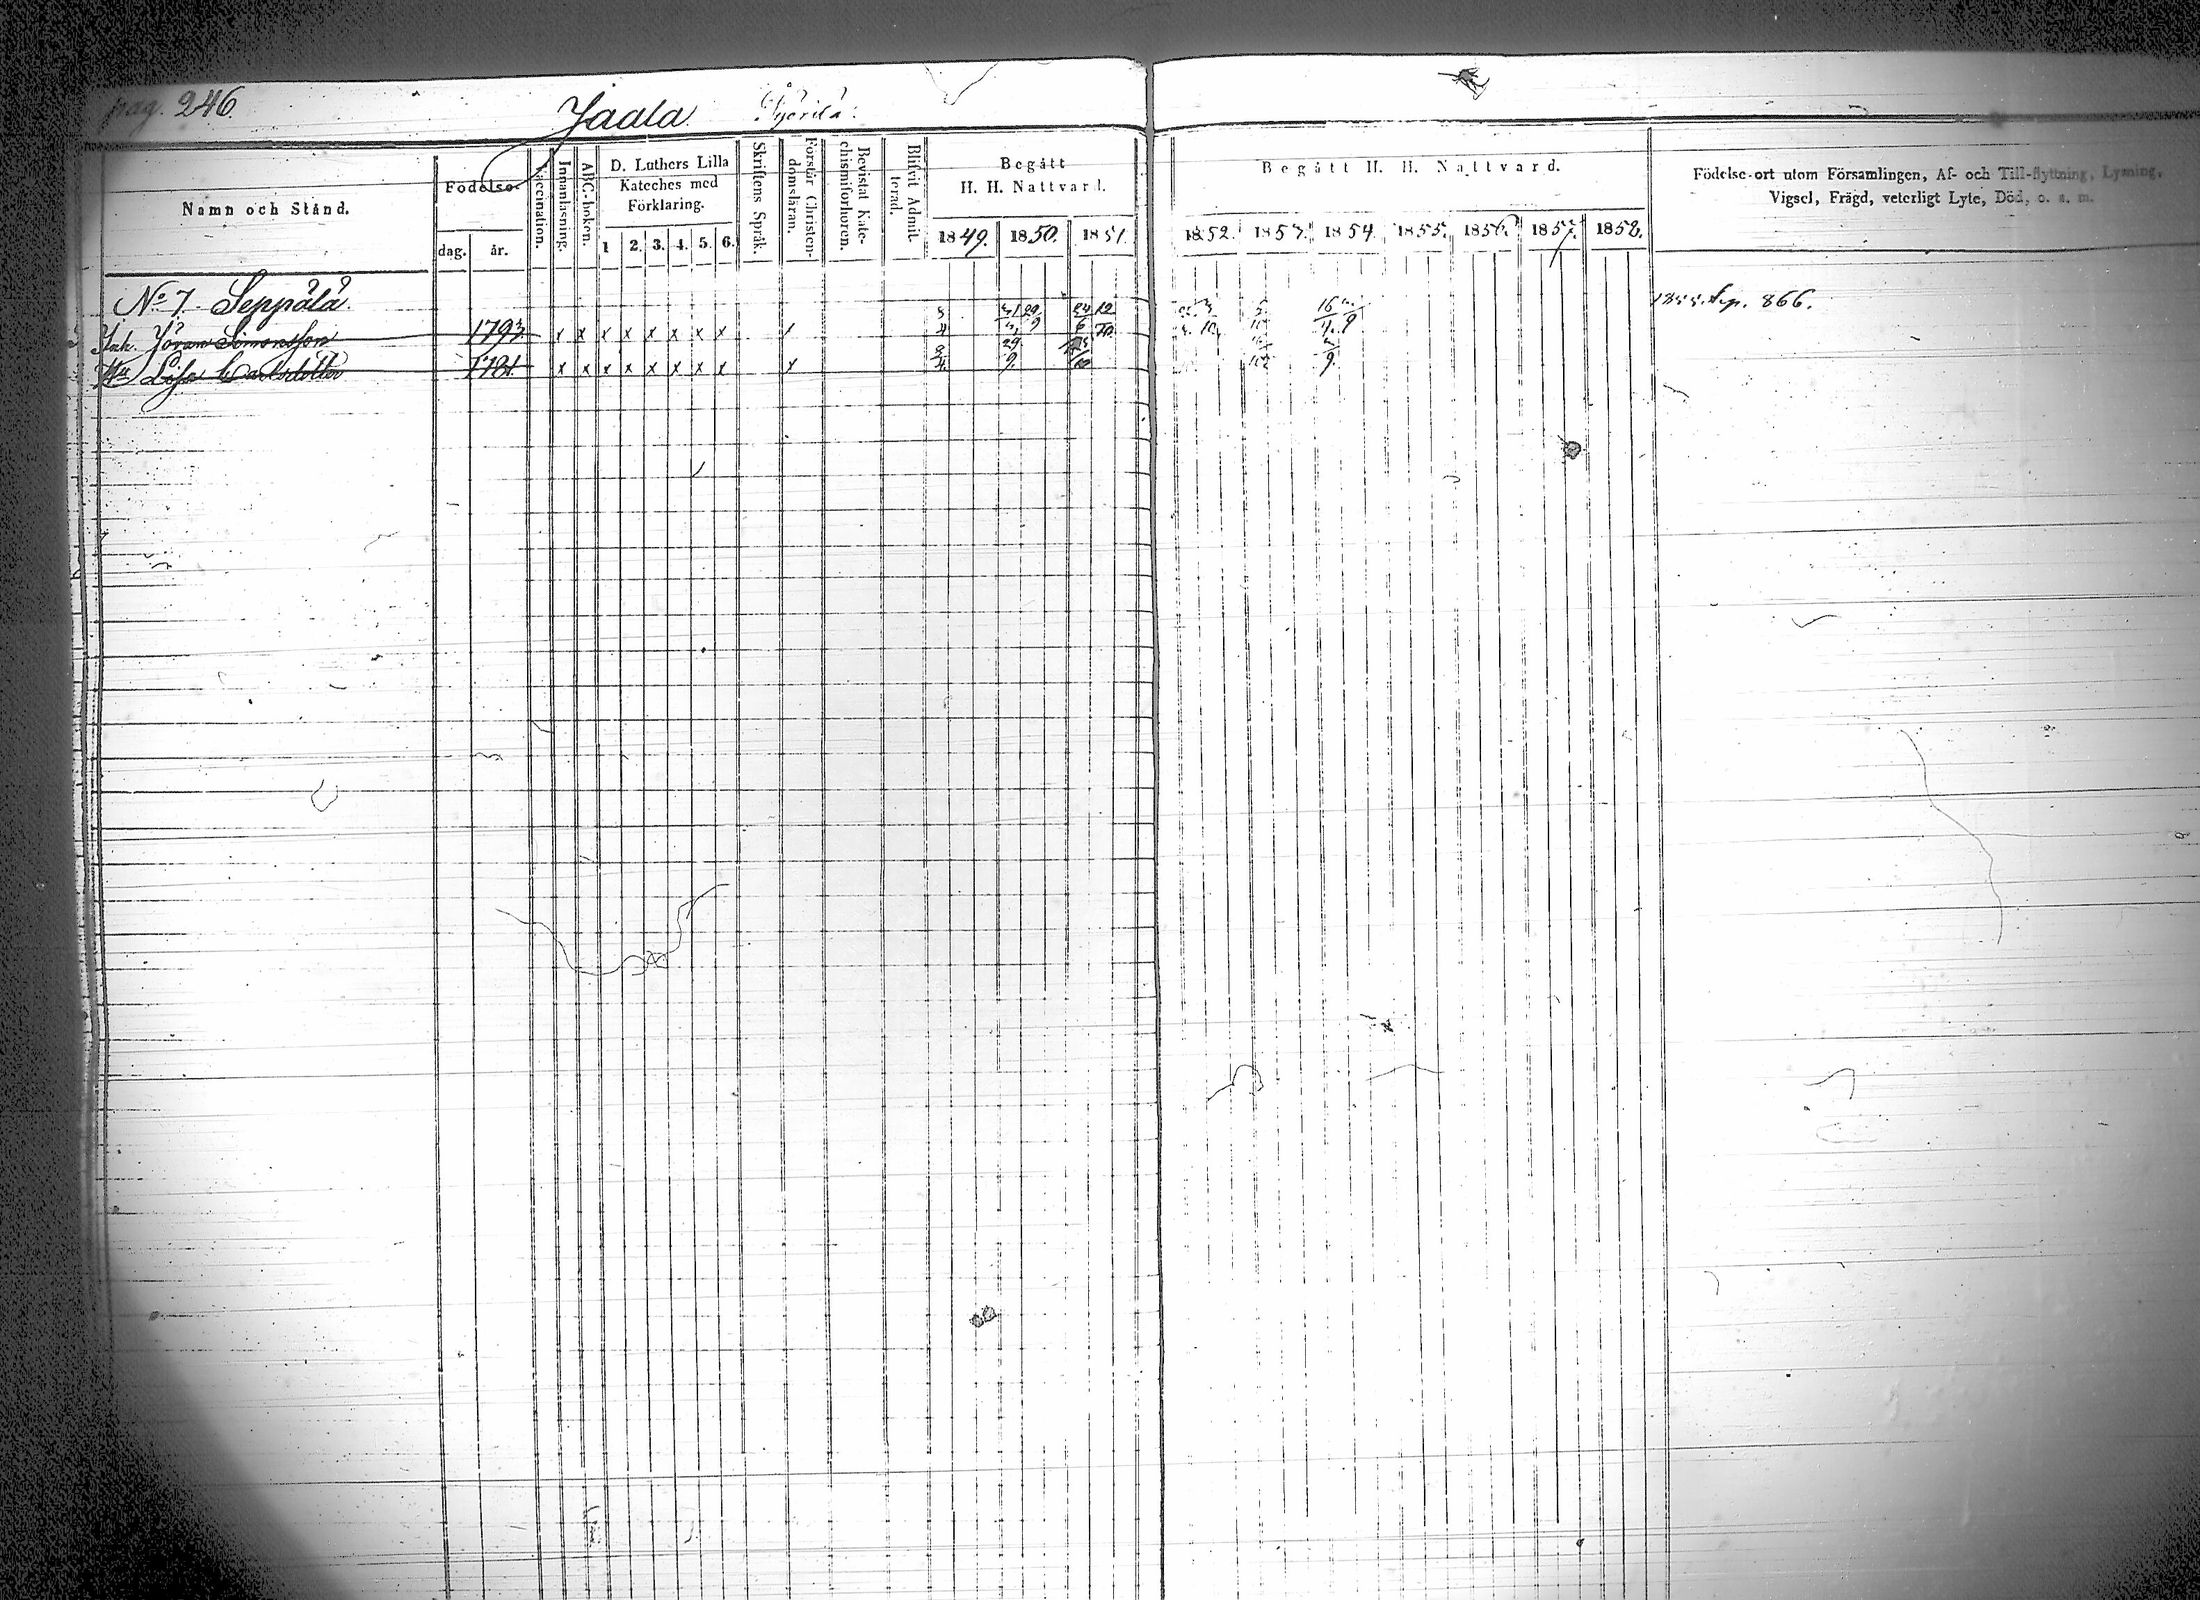 pag. 246.
Jaala
Namn och Stånd.
Födelse-
dag.
år.
Vaccination.
Innanläsning.
ABC-boken.
D. Luthers Lilla
Kateches med
Förklaring.
1 2. 3. 4. 5. 6.
Skriftens Språk.
Förstår Christen-
domsläran.
Bevistat Kate-
chismiförhören.
Blifvit Admit-
terad.
Begått
H. H. Nattvard.
1849. 1850. 1851.
Begått H. H. Nattvard.
1852. 1853. 1854. 1855. 1856. 1857. 1858.
Födelse-ort utom Församlingen, Af- och Till-flyttning, Lysning,
Vigsel, Frägd, veterligt Lyte, Död, o. s. m.
No 7. Seppälä
Inh. Jöran Simonsson 1793. x x x x x x x x
Hu Lisa Carlsdotter 1781. x x x x x x x x x
866.